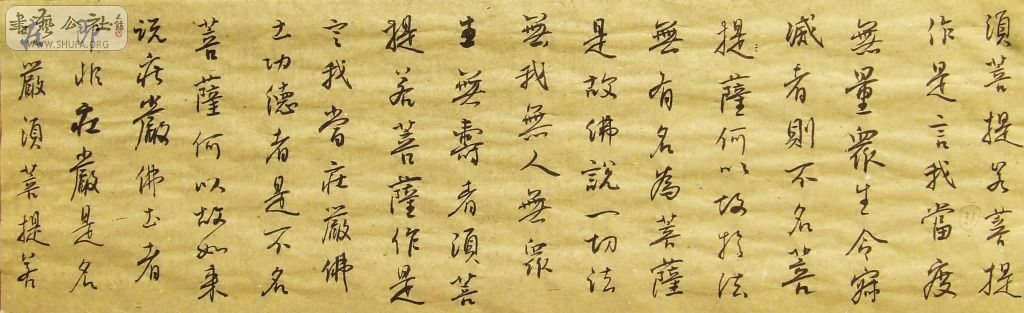 須菩提若菩提
作是言我當度
無量眾生令寂
滅者則不名菩
提薩何以故於法
無有名為菩薩
是故佛說一切法
無我無人無眾
生無壽者須菩
提若菩薩作是
言我當莊嚴佛
土功德者是不名
菩薩何以故如來
說莊嚴佛土者
非莊嚴是名
嚴須菩提若
書藝公社
WWW.SHUFA.ORG